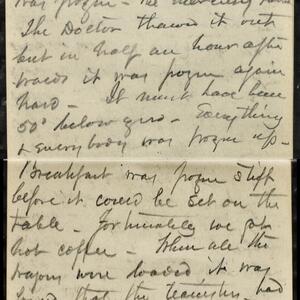 was froze - the mercury
The Doctor thawed it out
but in half an hour after
wards it was froze again
hard - It must have been
50° below zero - Everything
& everybody was froze up -
Breakfast was froze stiff
before it could be set on the
table - fortunately we got
hot coffee - When all the
wagons were loaded it was
found that the teamster had